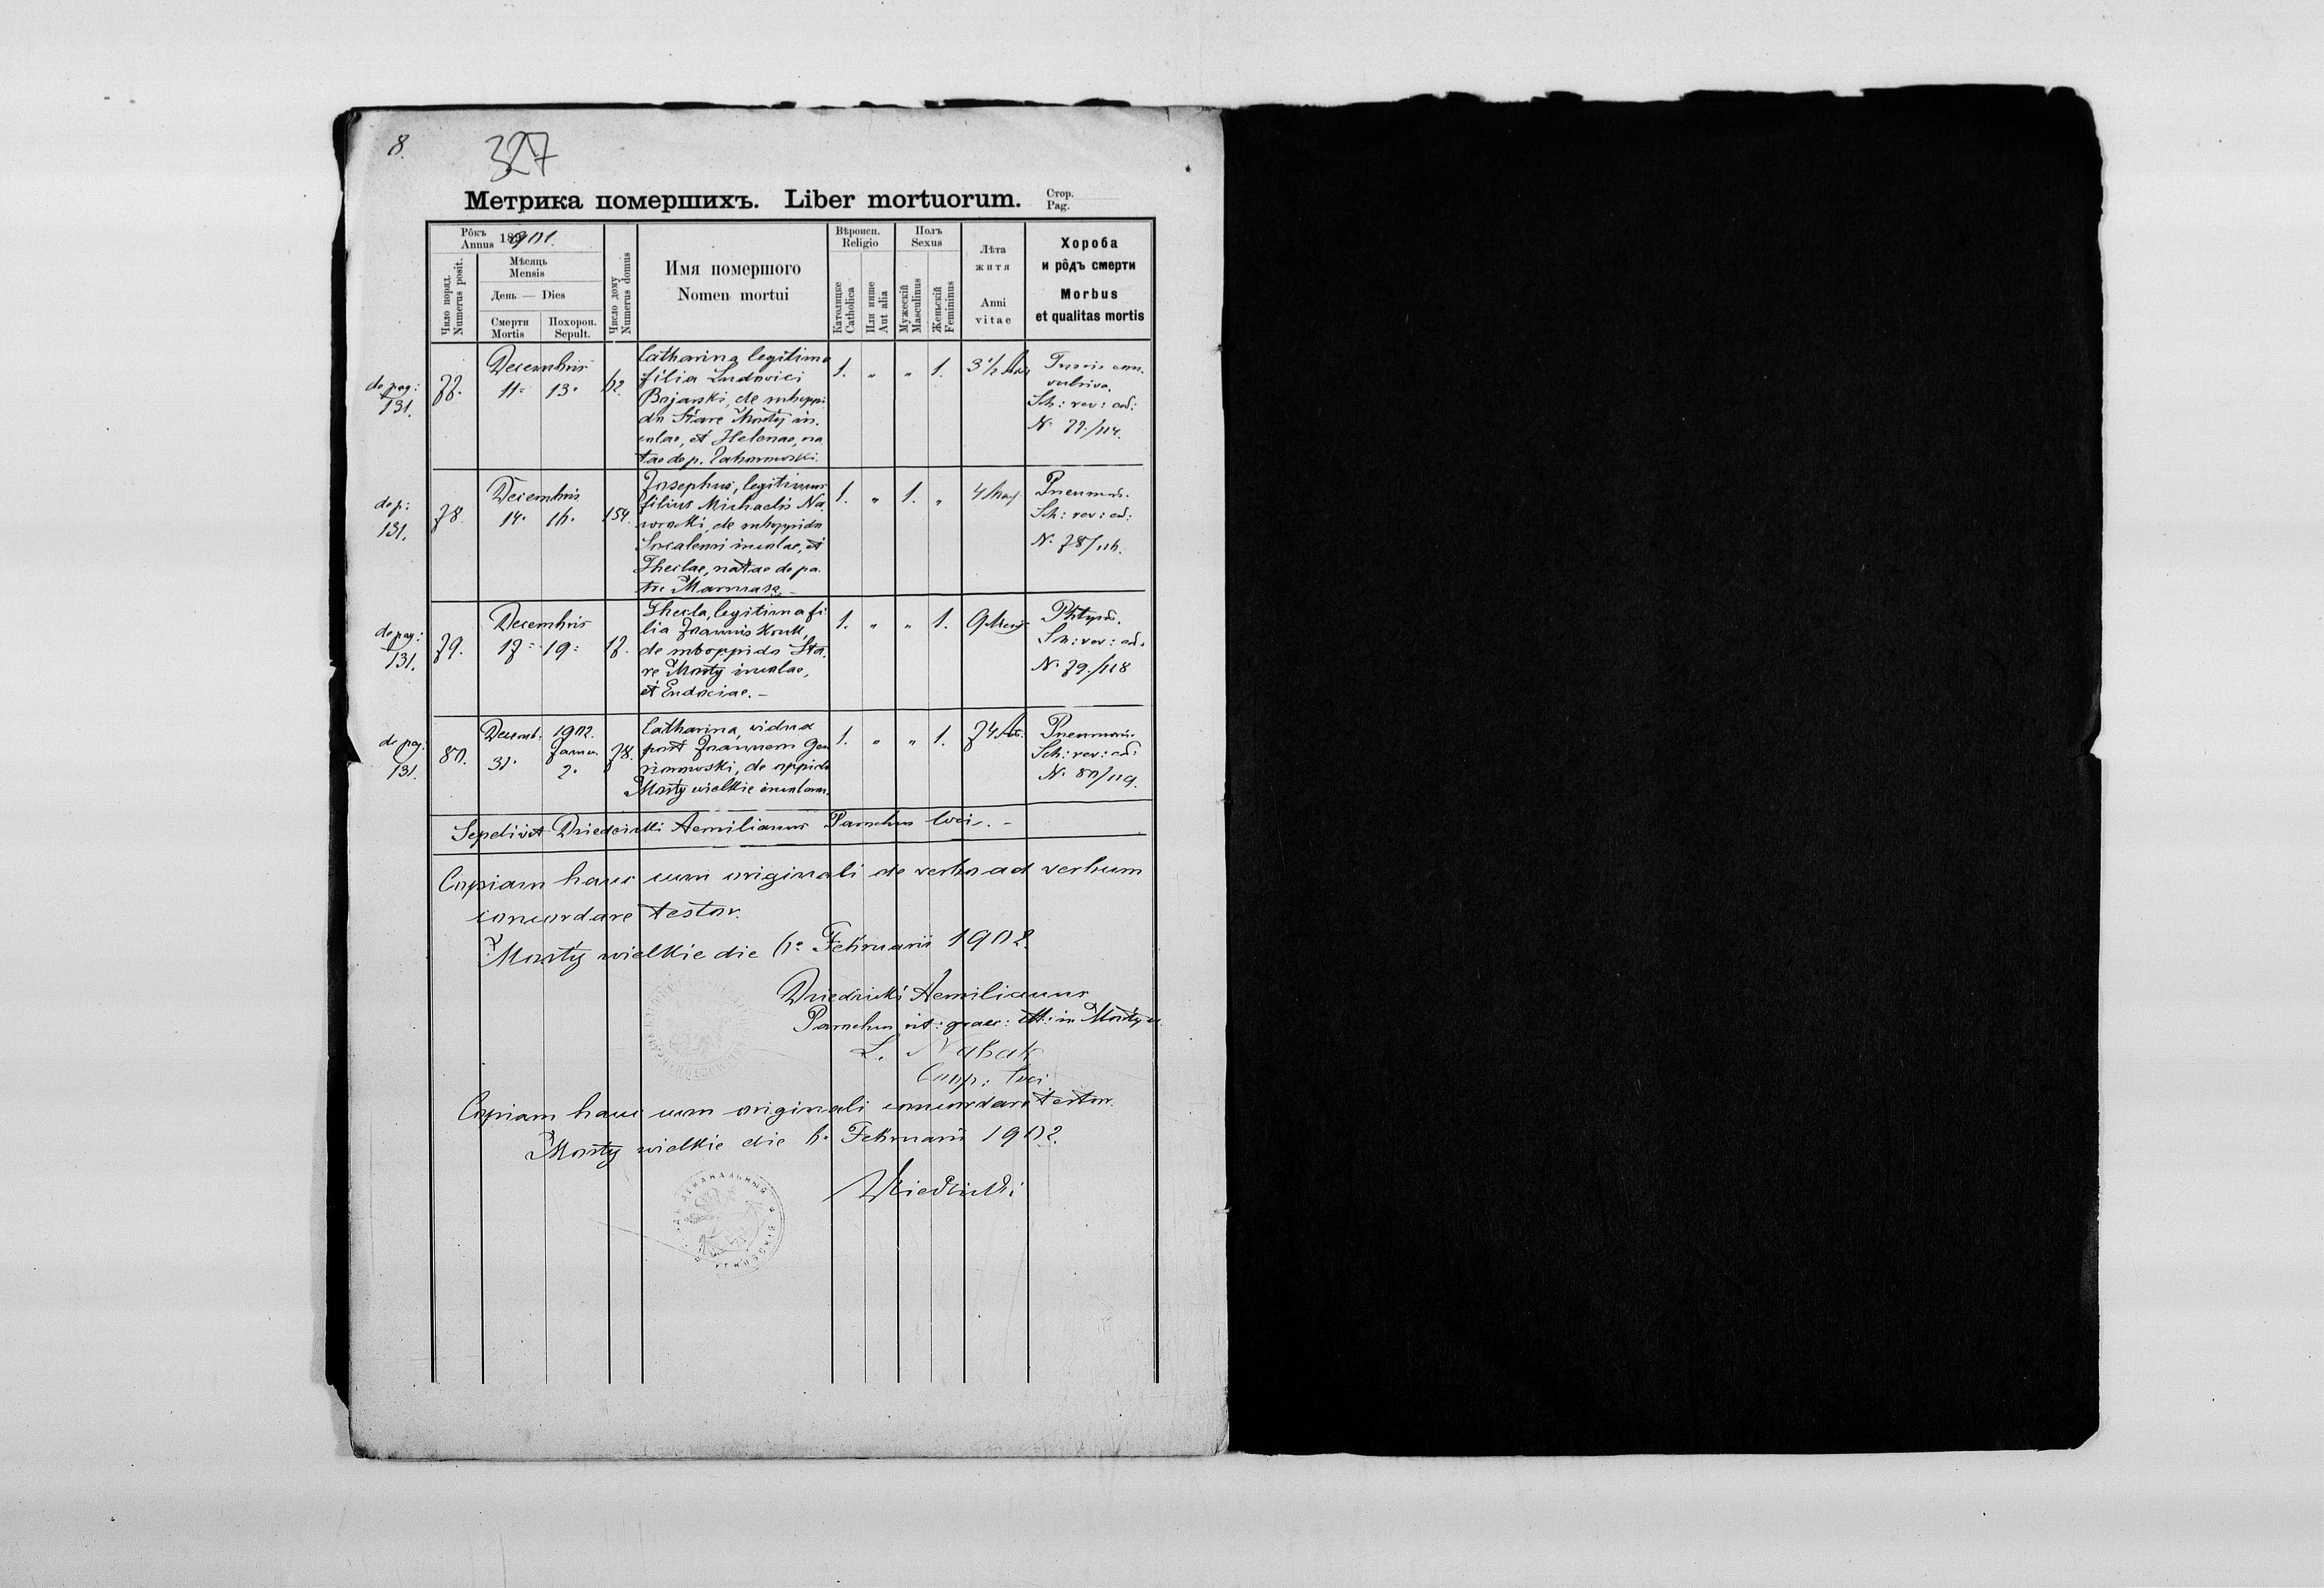 8.
327
Метрика померших​ъ. Liber mortuorum. Стор. Pag.
Рôкъ Annus 1901.
Чило поряд. Numerus posit.
Мѣсяць Mensis
День — Dies
Смерти Mortis
Похорон. Sepult.
Число дому Numerus domus
Имя помершого
Nomen mortui
Вѣроисп. Religio
Католицке Catholica
Или инше Aut alia
Полъ Sexus
Мужескій Masculinus
Женьскій Femininus
Лѣта житя
Anni vitae
Хороба
и рôдъ смерти
Morbus
et qualitas mortis
de pag: 131.
77.
Decembris
11. 13.
62.
Catharina legitima
filia Ludovici
Bojarski, de suboppi
do Stare Mosty in.
colae, et Helenae, na
tae de p.
1. „ „ 1.
3 1/2
Tussis con.
vulsiva.
Sch: rev: ed:
N. 77./114.
de p: 131.
78.
Decembris
14. 16.
154.
Josephus, legitimus
filius Michaelis Na
worocki, de suboppido
incolae, et
Theclae, natae de pa.
tre
1. „ 1. „
4
Pneumon.
Sch: rev: ed:
N. 78/116.
de pag: 131.
79.
Decembris
17. 19.
17.
Thecla, legitima fi
lia Joannis Kruk,
de suboppido Sta.
re Mosty incolae,
et Eudociae. –
1. „ „ 1.
9 Mens
Phtysis.
Sch: rev: ed:
N. 79./118
de pag: 131.
80.
Decemb: 1902.
31. Januar. 2.
78.
Catharina, vidua
post Joannem
de oppido
Mosty wielkie incolam.
1. „ „ 1.
74
Pneumonia
Sch: rev: ed:
N. 80/119.
Sepelivit Dziedzicki Aemilianus Parochus loci. –
Copiam hanc cum originali de verbo ad verbum
concordare testor.
Mosty wielkie die 6. Februarii 1902.
Dziedzicki Aemilianus
Parochus rit: graec: cath: in Mosty w.
Coop: loci
Copiam hanc cum originali concordare testor.
Mosty wielkie die 6. Februarii 1902.
Dziedzicki